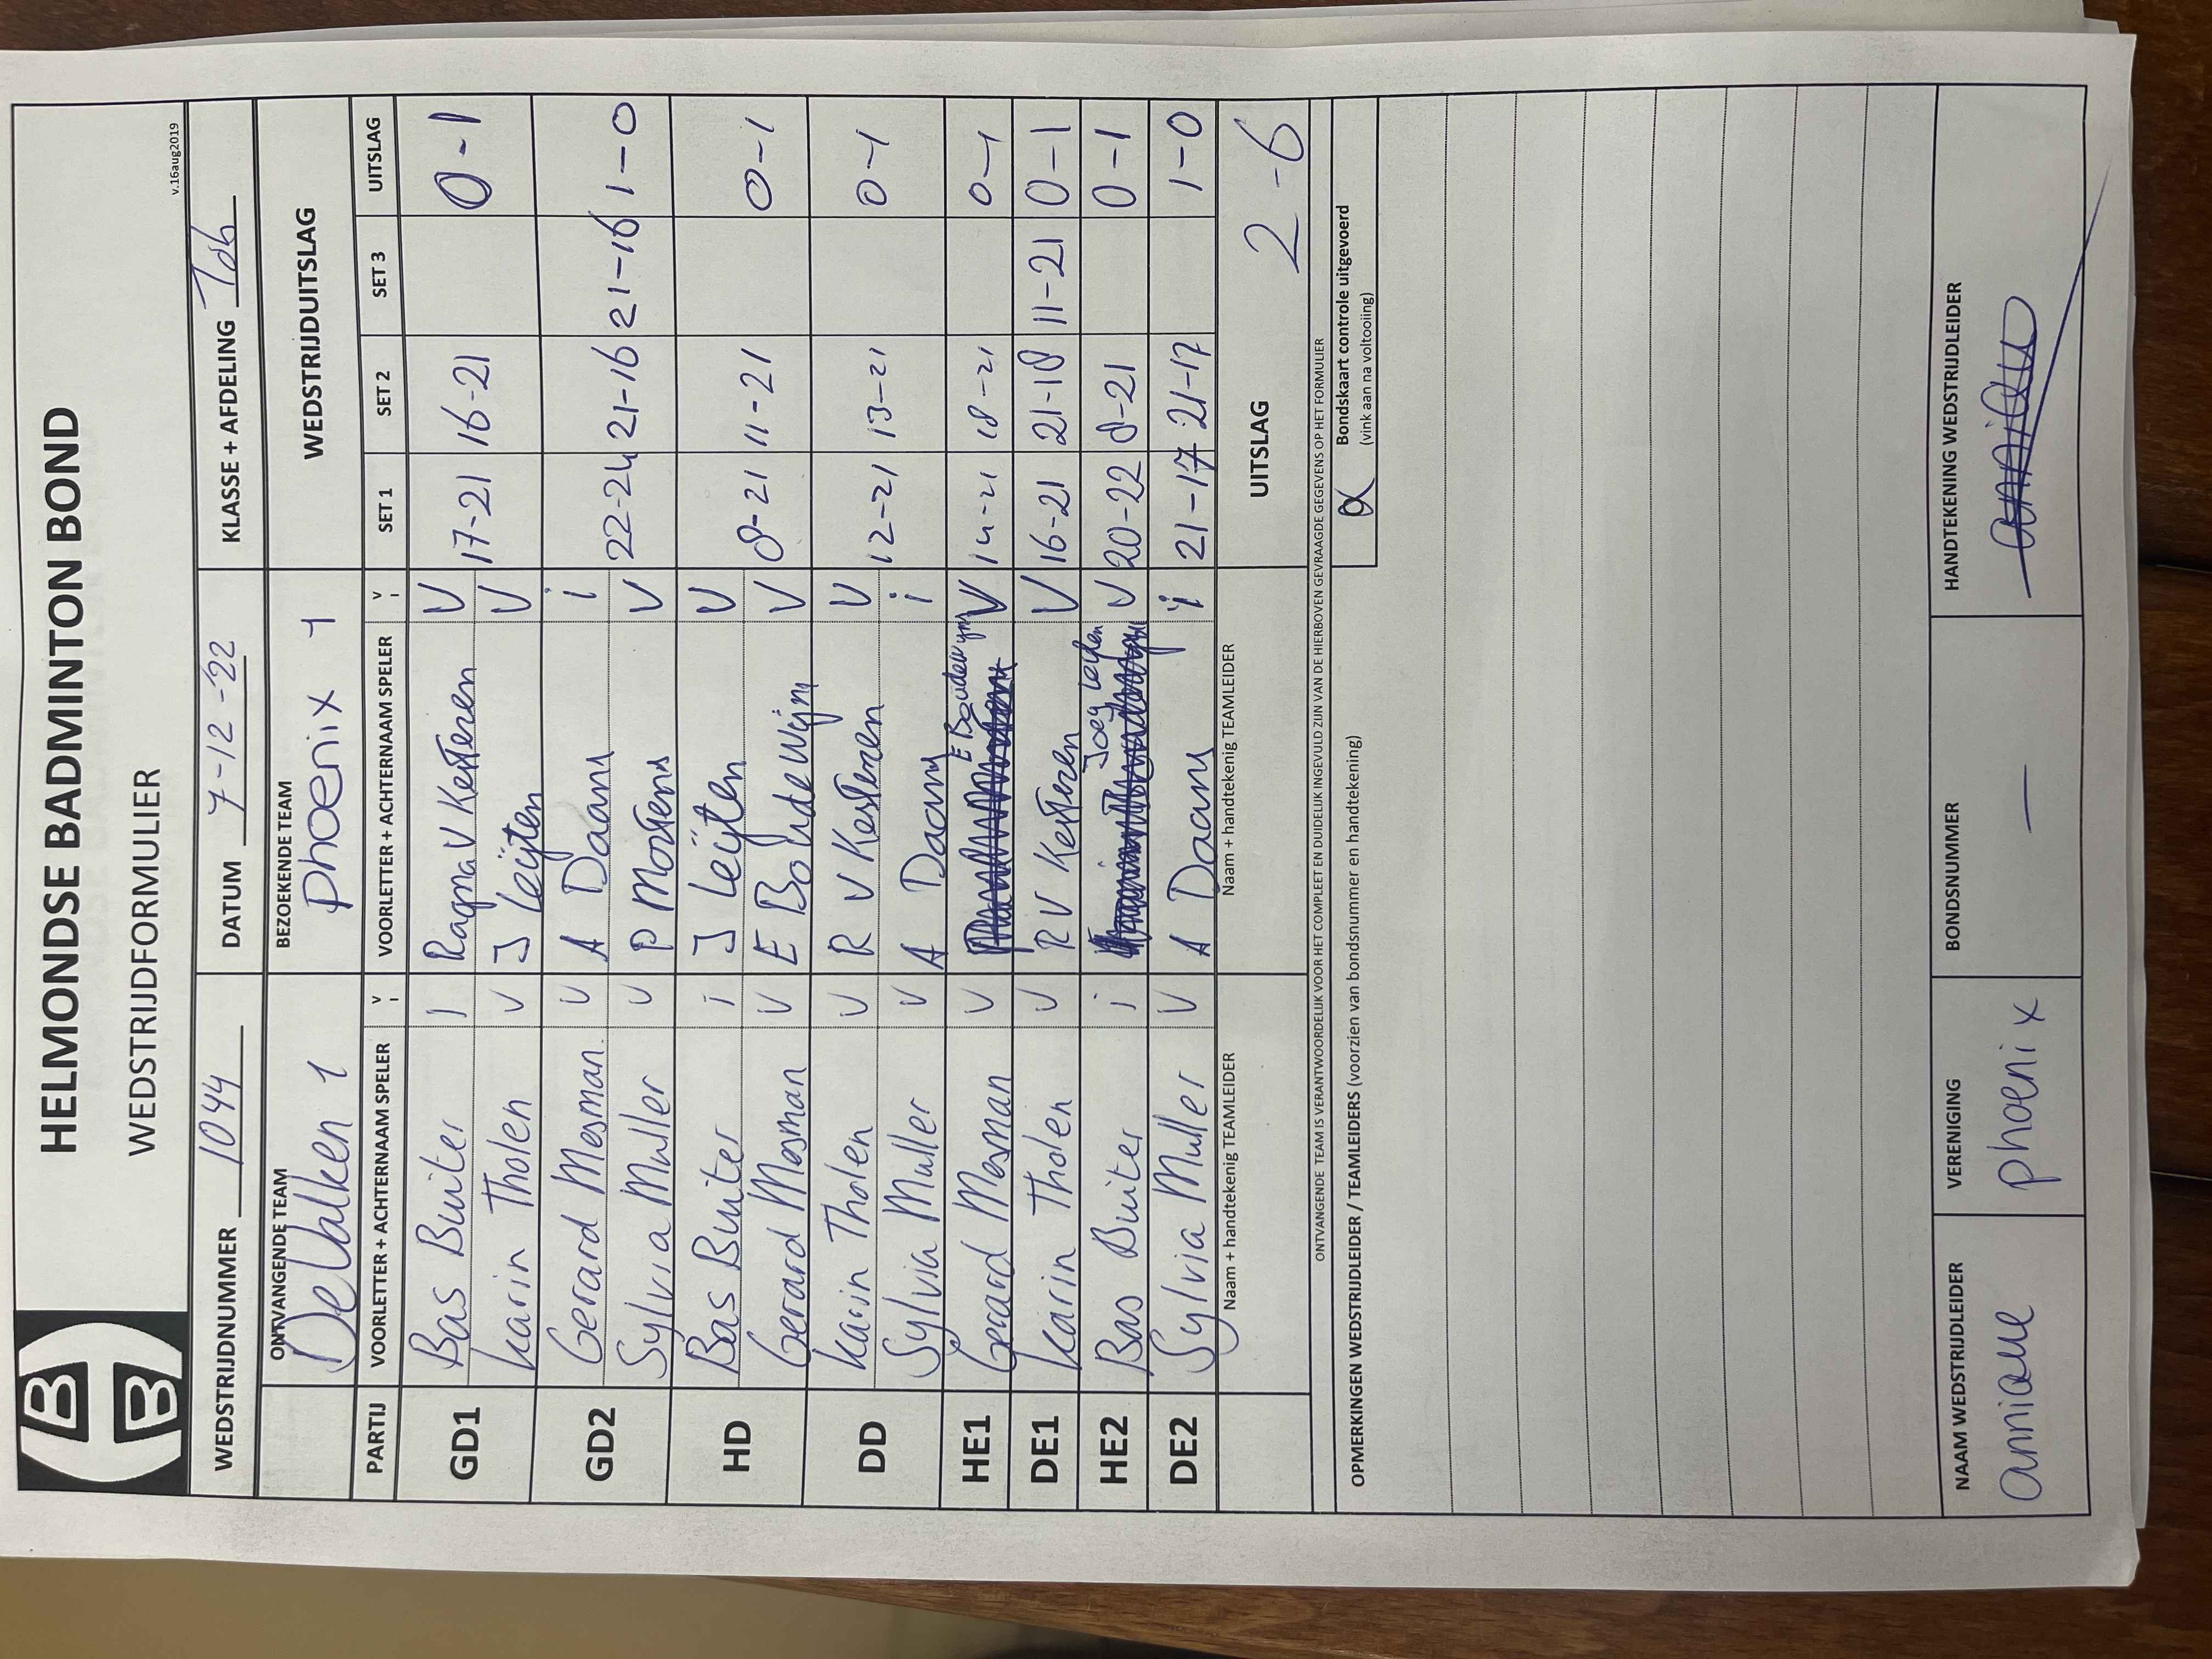 HELMONDSE BADMINTON BOND
WEDSTRIJDFORMULIER
v.16aug2019
WEDSTRIJDNUMMER 1044 DATUM 7-12-'22 KLASSE + AFDELING
ONTVANGENDE TEAM BEZOEKENDE TEAM WEDSTRIJDUITSLAG
De Valken 1 phoenix 1
PARTIJ VOORLETTER + ACHTERNAAM SPELER V I VOORLETTER + ACHTERNAAM SPELER V I SET 1 SET 2 SET 3 UITSLAG
GD1 Bas Buiter I Ragna V Kesteren V 17-21 16-21 0-1
Karin Tholen V J Leijten V
GD2 Gerard Mesman V A Daams i 22-24 21-16 21-16 1-0
Sylvia Muller V P Mostens V
HD Bas Buiter i J Leijten V 8-21 11-21 0-1
Gerard Mesman V E Boudewijns V
DD Karin Tholen V R V Kesteren V 12-21 13-21 0-1
Sylvia Muller V A Daams i
HE1 Gerard Mesman V E Boudewijns V 14-21 18-21 0-1
DE1 Karin Tholen V R V Kesteren V 16-21 21-18 11-21 0-1
HE2 Bas Buiter i Joey Leijten V 20-22 8-21 0-1
DE2 Sylvia Muller V A Daams i 21-17 21-17 1-0
Naam + handtekenig TEAMLEIDER Naam + handtekenig TEAMLEIDER UITSLAG 2-6
ONTVANGENDE TEAM IS VERANTWOORDELIJK VOOR HET COMPLEET EN DUIDELIJK INGEVULD ZIJN VAN DE HIERBOVEN GEVRAAGDE GEGEVENS OP HET FORMULIER
OPMERKINGEN WEDSTRIJDLEIDER / TEAMLEIDERS (voorzien van bondsnummer en handtekening)
Bondskaart controle uitgevoerd
(vink aan na voltooiing)
NAAM WEDSTRIJDLEIDER VERENIGING BONDSNUMMER HANDTEKENING WEDSTRIJDLEIDER
anniane phoenix —